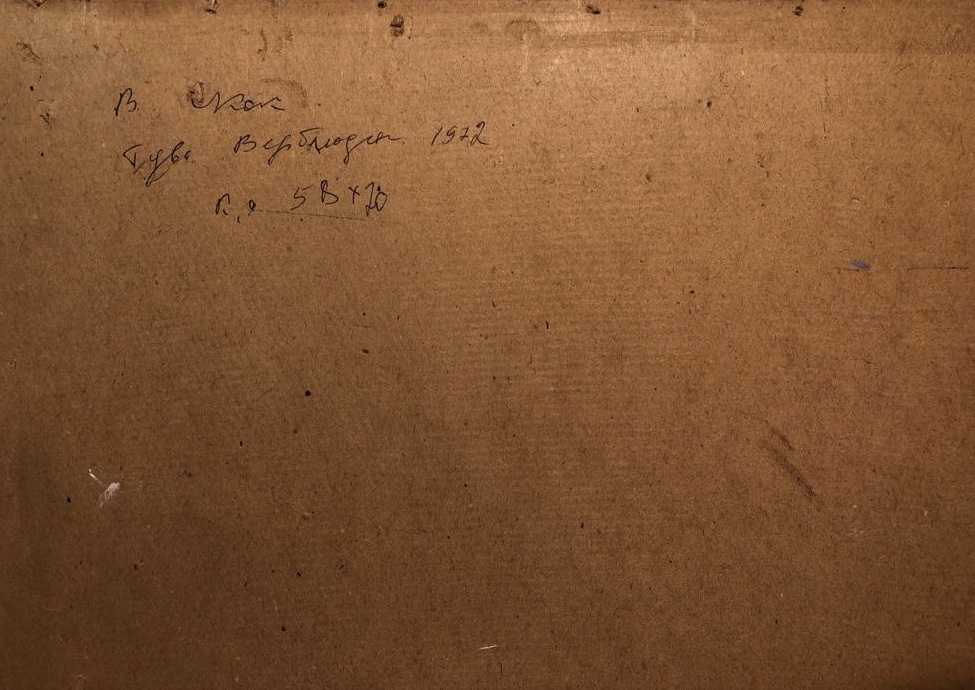 В. Кок
Тува. Верблюды. 1972
к. м 58 x 70